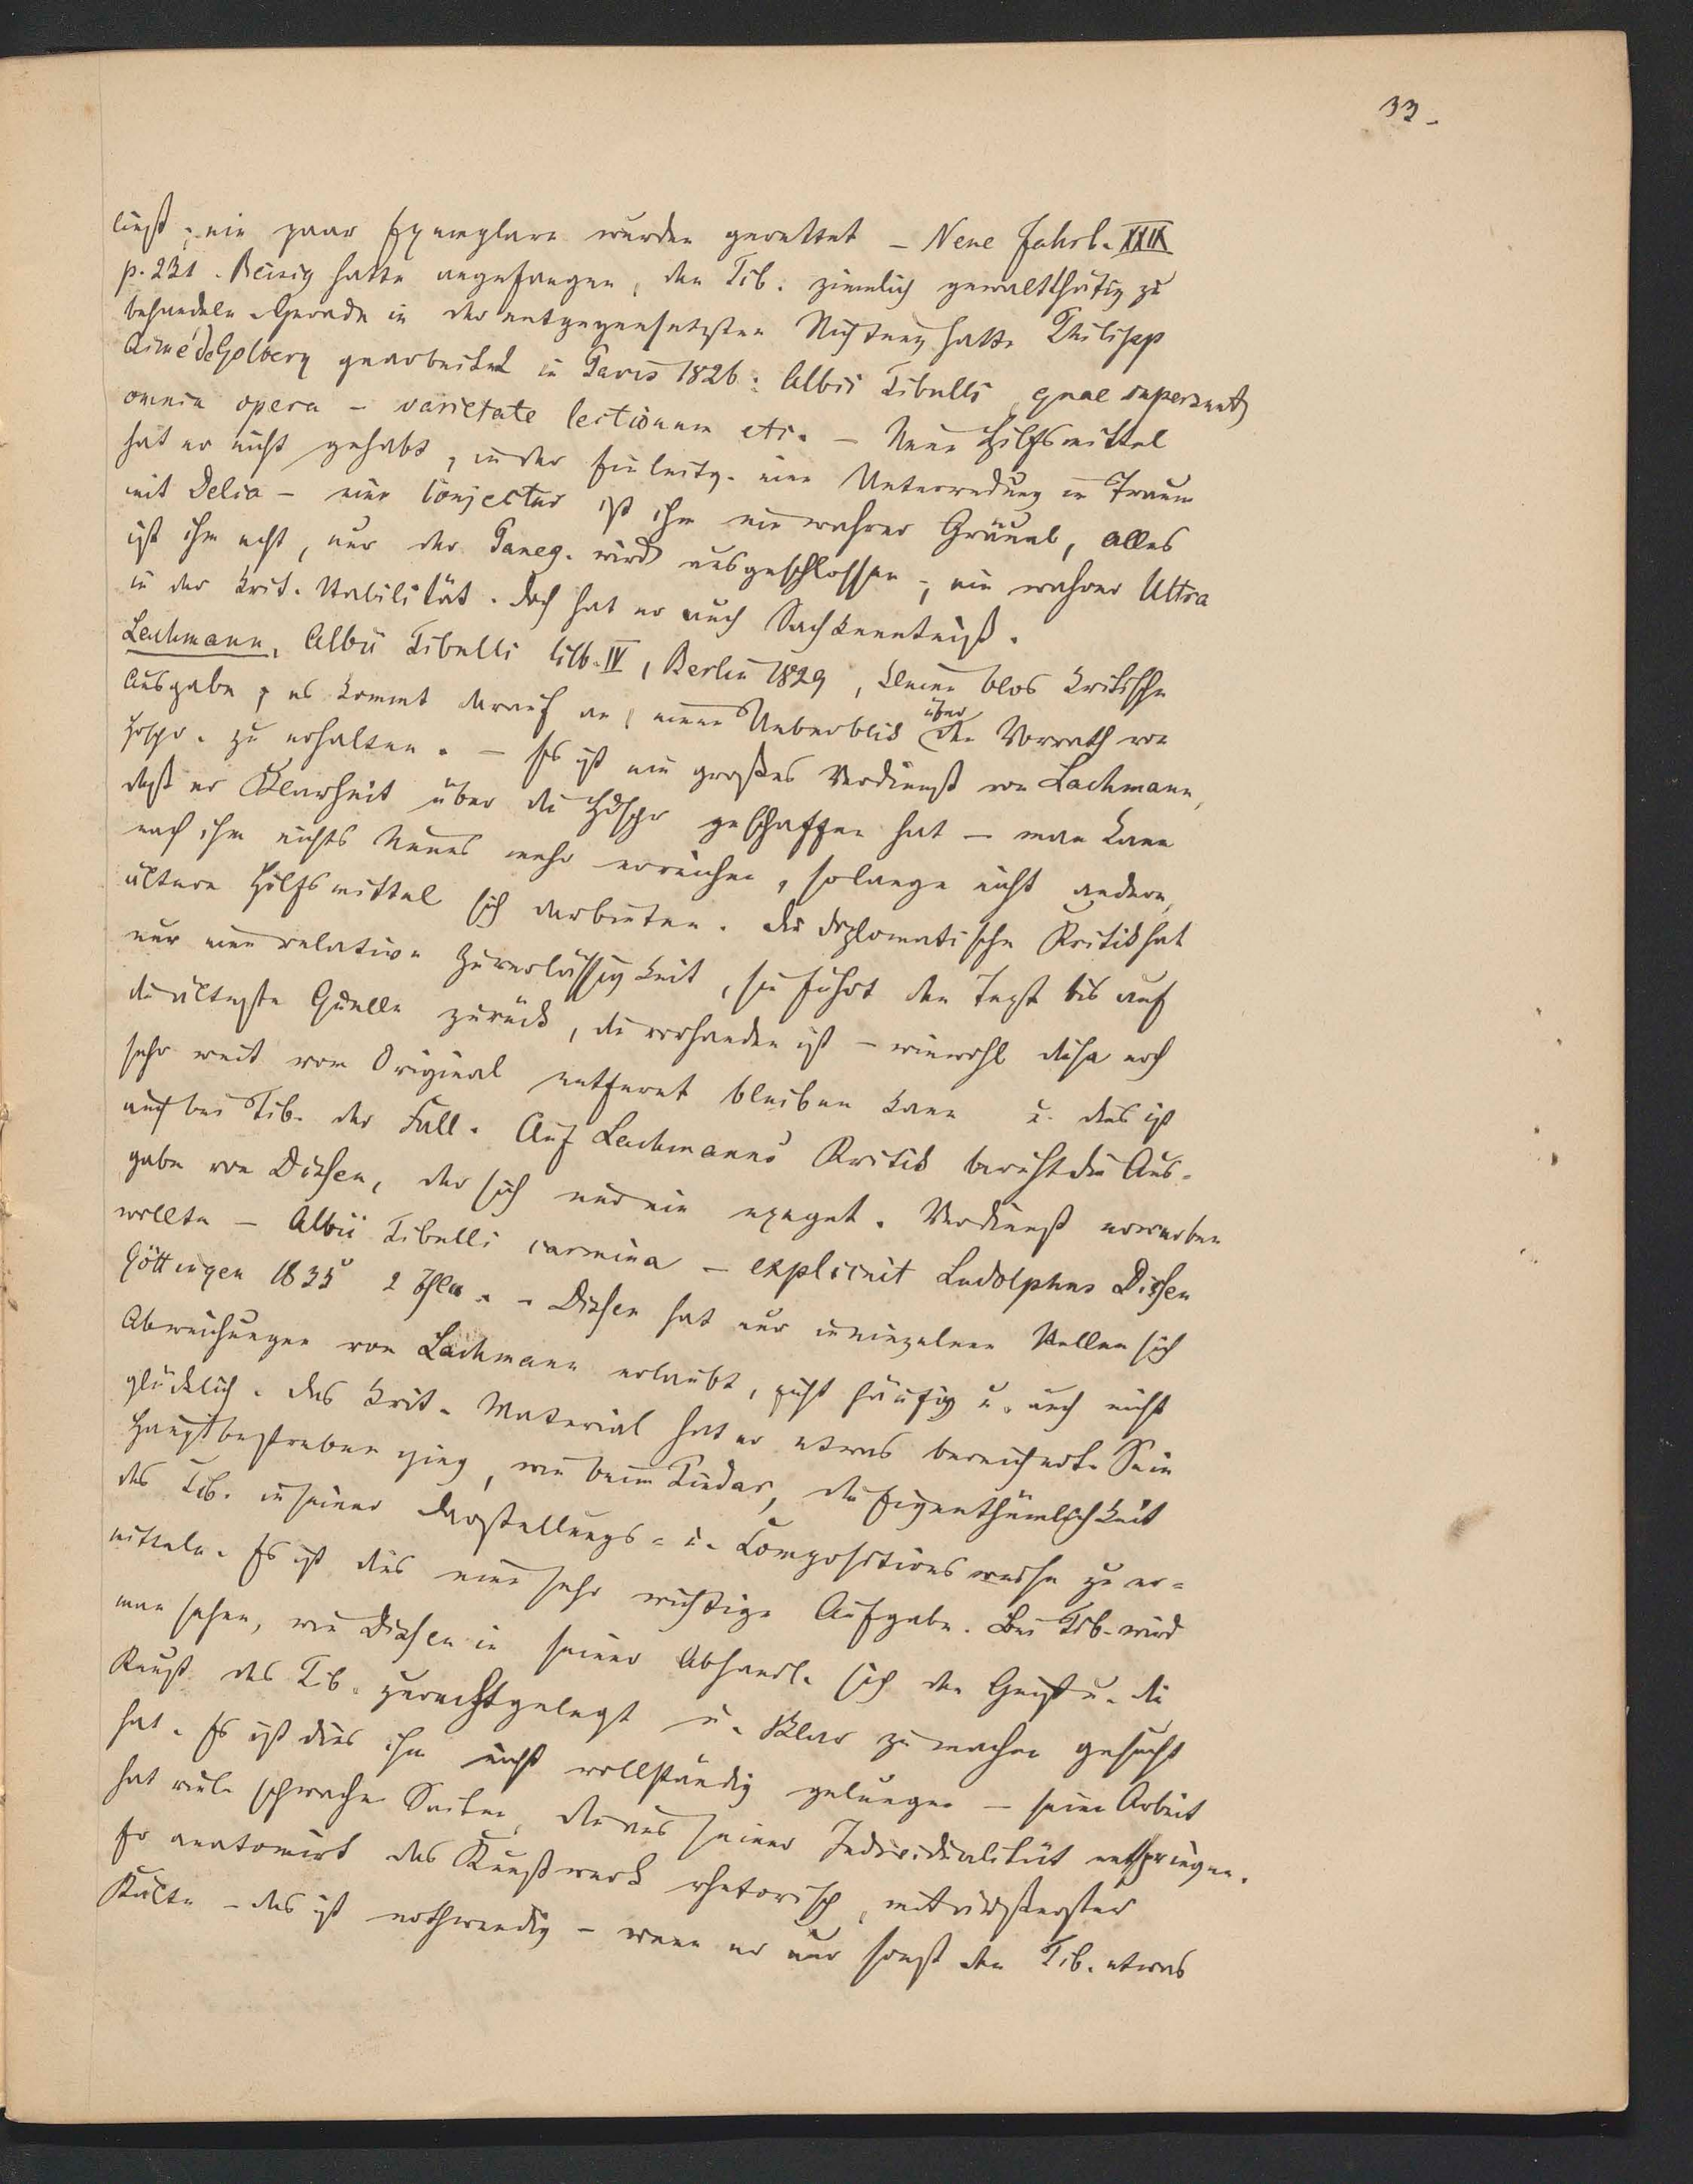 33.
ließ; ein paar Exemplare wurden gerettet – Neue Jahrb. XXIX
p. 231. Reisig hatte angefangen, den Tib. ziemlich gewaltthätig zu
behandeln. Gerade in der entgegengesetzten Richtung hatte Philipp
Aimé de Golbery gearbeitet in Paris 1826: Albii Tibulli, quae supersunt,
omnia opera – varietate lectionum etc. – Neue Hilfsmittel
hat er nicht gehabt, in der Einleitg. eine Unterredung im Traum
mit Delia – eine Conjectur ist ihm ein wahrer Gräuel, alles
ist ihm ächt, nur der Paneg. wird ausgeschlossen; ein wahrer Ultra
in der krit. Stabilität. Doch hat er auch Sachkenntniß.
Lachmann, Albii Tibulli libb. IV, Berlin 1829, kleine blos kritische
Ausgabe, es kommt darauf an, einen Ueberblick über den Vorrath von
Hdschr. zu erhalten. – Es ist ein großes Verdienst von Lachmann,
daß er Klarheit über die Hdschr geschaffen hat – man kann
nach ihm nichts Neues mehr erreichen, solange nicht andere,
ältere Hilfsmittel sich darbieten. Die diplomatische Kritik hat
nur eine relative Zuverlässigkeit, sie führt den Text bis auf
die älteste Quelle zurück, die vorhanden ist – wiewohl diese noch
sehr weit vom Original entfernt bleiben kann u. dies ist
auch bei Tib. der Fall. Auf Lachmanns Kritik beruht die Aus-
gabe von Dissen, der sich nur ein exeget. Verdienst erwerben
wollte – Albii Tibulli carmina – explicuit Ludolphus Dissen
Göttingen 1835 2 Thle. – Dissen hat nur in einzelnen Stellen sich
Abweichungen von Lachmann erlaubt, nicht häufig u. auch nicht
glücklich. Das krit. Material hat er etwas bereichert. Sein
Hauptbestreben ging, wie beim Pindar, die Eigenthümlichkeit
des Tib. in seiner Darstellungs- u. Compositionsweise zu er-
mitteln. Es ist dies eine sehr wichtige Aufgabe. Bei Tib. wird
man sehen, wie Dissen in seiner Abhandl. sich den Geist u. die
Kunst des Tib. zurechtgelegt u. klar zu machen gesucht
hat. Es ist dies ihm nicht vollständig gelungen – seine Arbeit
hat viele schwache Seiten, die aus seiner Individualität entspringen.
Er anatomirt das Kunstwerk rhetorisch, mit äußerster
Kälte – das ist nothwendig – wenn er nur sonst den Tib. etwas